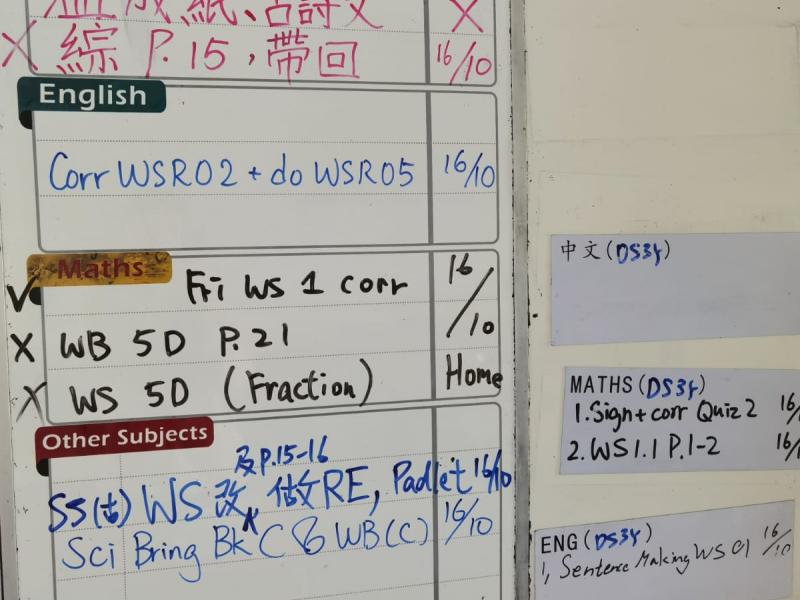 紙、
X
X 綜 P.15,帶回 16/10
English
Corr WSR02 + do WSR05 16/10
Maths
✓ Fri WS 1 corr 16/10
X WB 5D P.21
X WS 5D (Fraction) Home
Other Subjects
及P.15-16
WS 改, 做RE, Padlet 16/10
Sci Bring Bk C & WB(C) 16/10
中文(DS3y)
MATHS(DS3y)
1.Sign+corr Quiz 2 16/
2.WS1.1 P.1-2 16/
ENG(DS3y)
1, Sentence Making WS 01 16/10